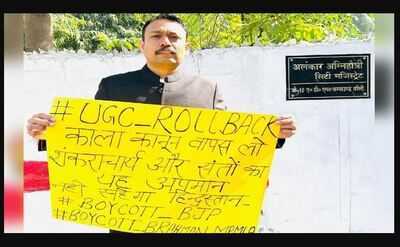 अलंकार अग्निहोत्री
सिटी मजिस्ट्रेट
#UGC_ROLLBACK
काला कानून वापस लो
शंकराचार्य और संतों का
यह अपमान
नहीं सहेगा हिन्दुस्तान-
#BOYCOTT_BJP
#BOYCOTT_BRAHMAN_MPMLA